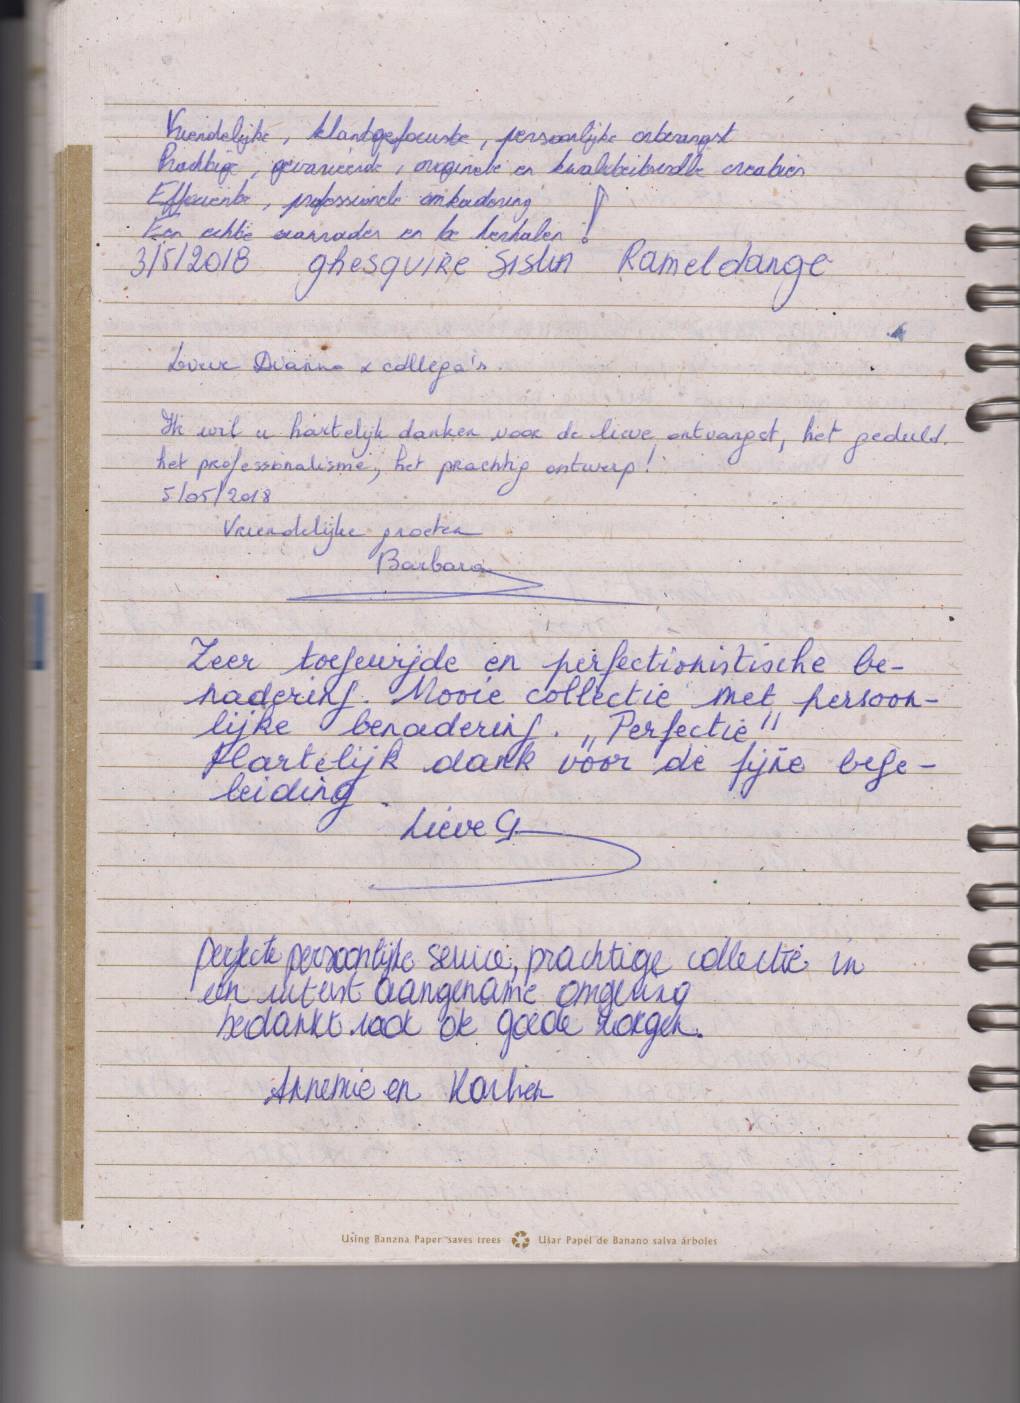 Vriendelijke, klantgefocuste, persoonlijke ontvangst
Prachtige, gevarieerde, originele en kwaliteitsvolle creaties
Efficiënte, professionele omkadering
Een echte aanrader en te herhalen!
3/5/2018 GHESQUIRE Rameldange
Lieve Dianne & collega's.
Ik wil u hartelijk danken voor de lieve ontvangst, het geduld.
het professionalisme, het prachtig ontwerp!
5/05/2018
Vriendelijke groeten
Barbara
Zeer toegewijde en perfectionistische be-
nadering. Mooie collectie met persoon-
lijke benadering. „Perfectie"
Hartelijk dank voor de fijne bege-
leiding.
Lieve G
perfecte persoonlijke service, prachtige collectie in
een uiterst aangename omgeving
bedankt voor de goede zorgen.
Annemie en
Using Banana Paper saves trees Usar Papel de Banano salva árboles